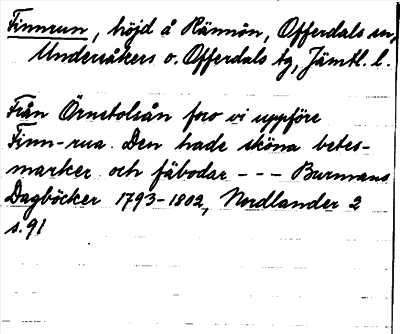 Finnrun, höjd å Rännön, Offerdals sn,
Undersåkers o. Offerdals tg, Jämtl. l.
Från Örnstolsån foro vi uppföre
Finn-rua. Den hade sköna betes-
marker och fäbodar - - - Burmans
Dagböcker 1793-1802, Nordlander 2
s. 91